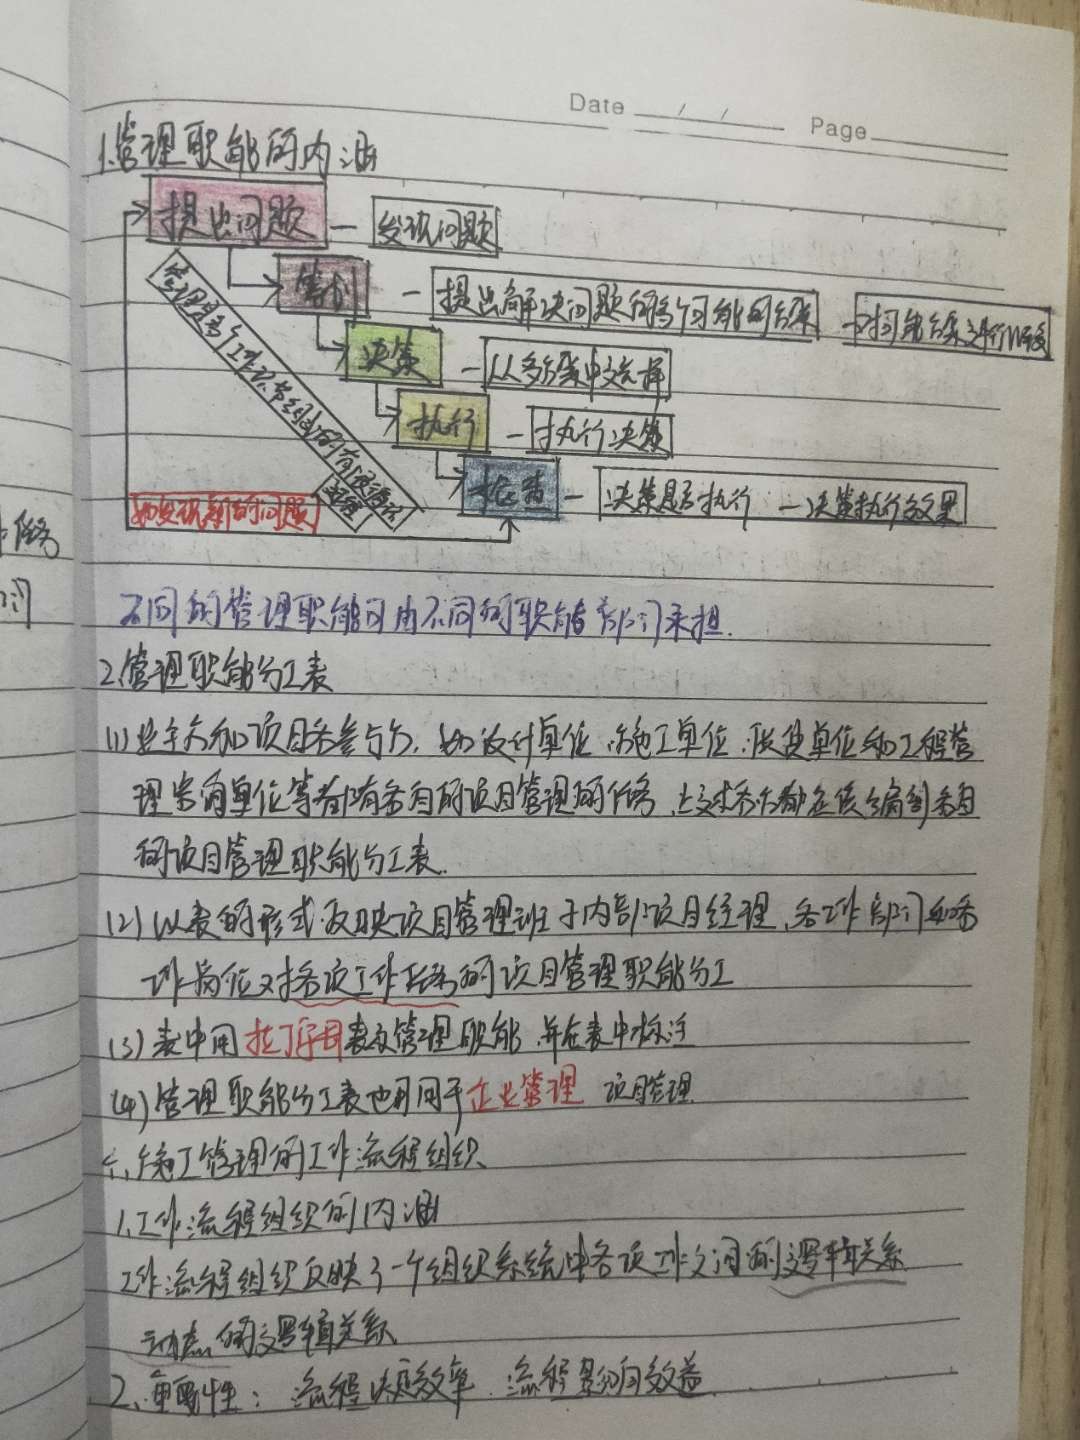 Date / / Page
1.管理职能的内涵
提出问题 — 发现问题
筹划 — 提出解决问题的多个可能的方案 — 对可能方案进行比较
决策 — 从多方案中选择
执行 — 执行决策
检查 — 决策是否执行 — 决策执行效果
管理是多个工作环节组成的有限循环
过程
如发现新的问题
任务
门
不同的管理职能可由不同的职能部门承担.
2.管理职能分工表
(1)业主方和项目各参与方,如设计单位、施工单位、供货单位和工程管
理咨询单位等都有各自的项目管理的任务,上述各方都应该编制各自
的项目管理职能分工表.
(2)以表的形式反映项目管理班子内部项目经理、各工作部门和各
工作岗位对各项工作任务的项目管理职能分工
(3)表中用拉丁字母表示管理职能,并在表中标注
(4)管理职能分工表也可用于企业管理 项目管理
六、施工管理的工作流程组织
1.工作流程组织的内涵
工作流程组织反映了一个组织系统中各项工作之间的逻辑关系
动态的逻辑关系
2.重要性: 流程决定效率 流程影响效益